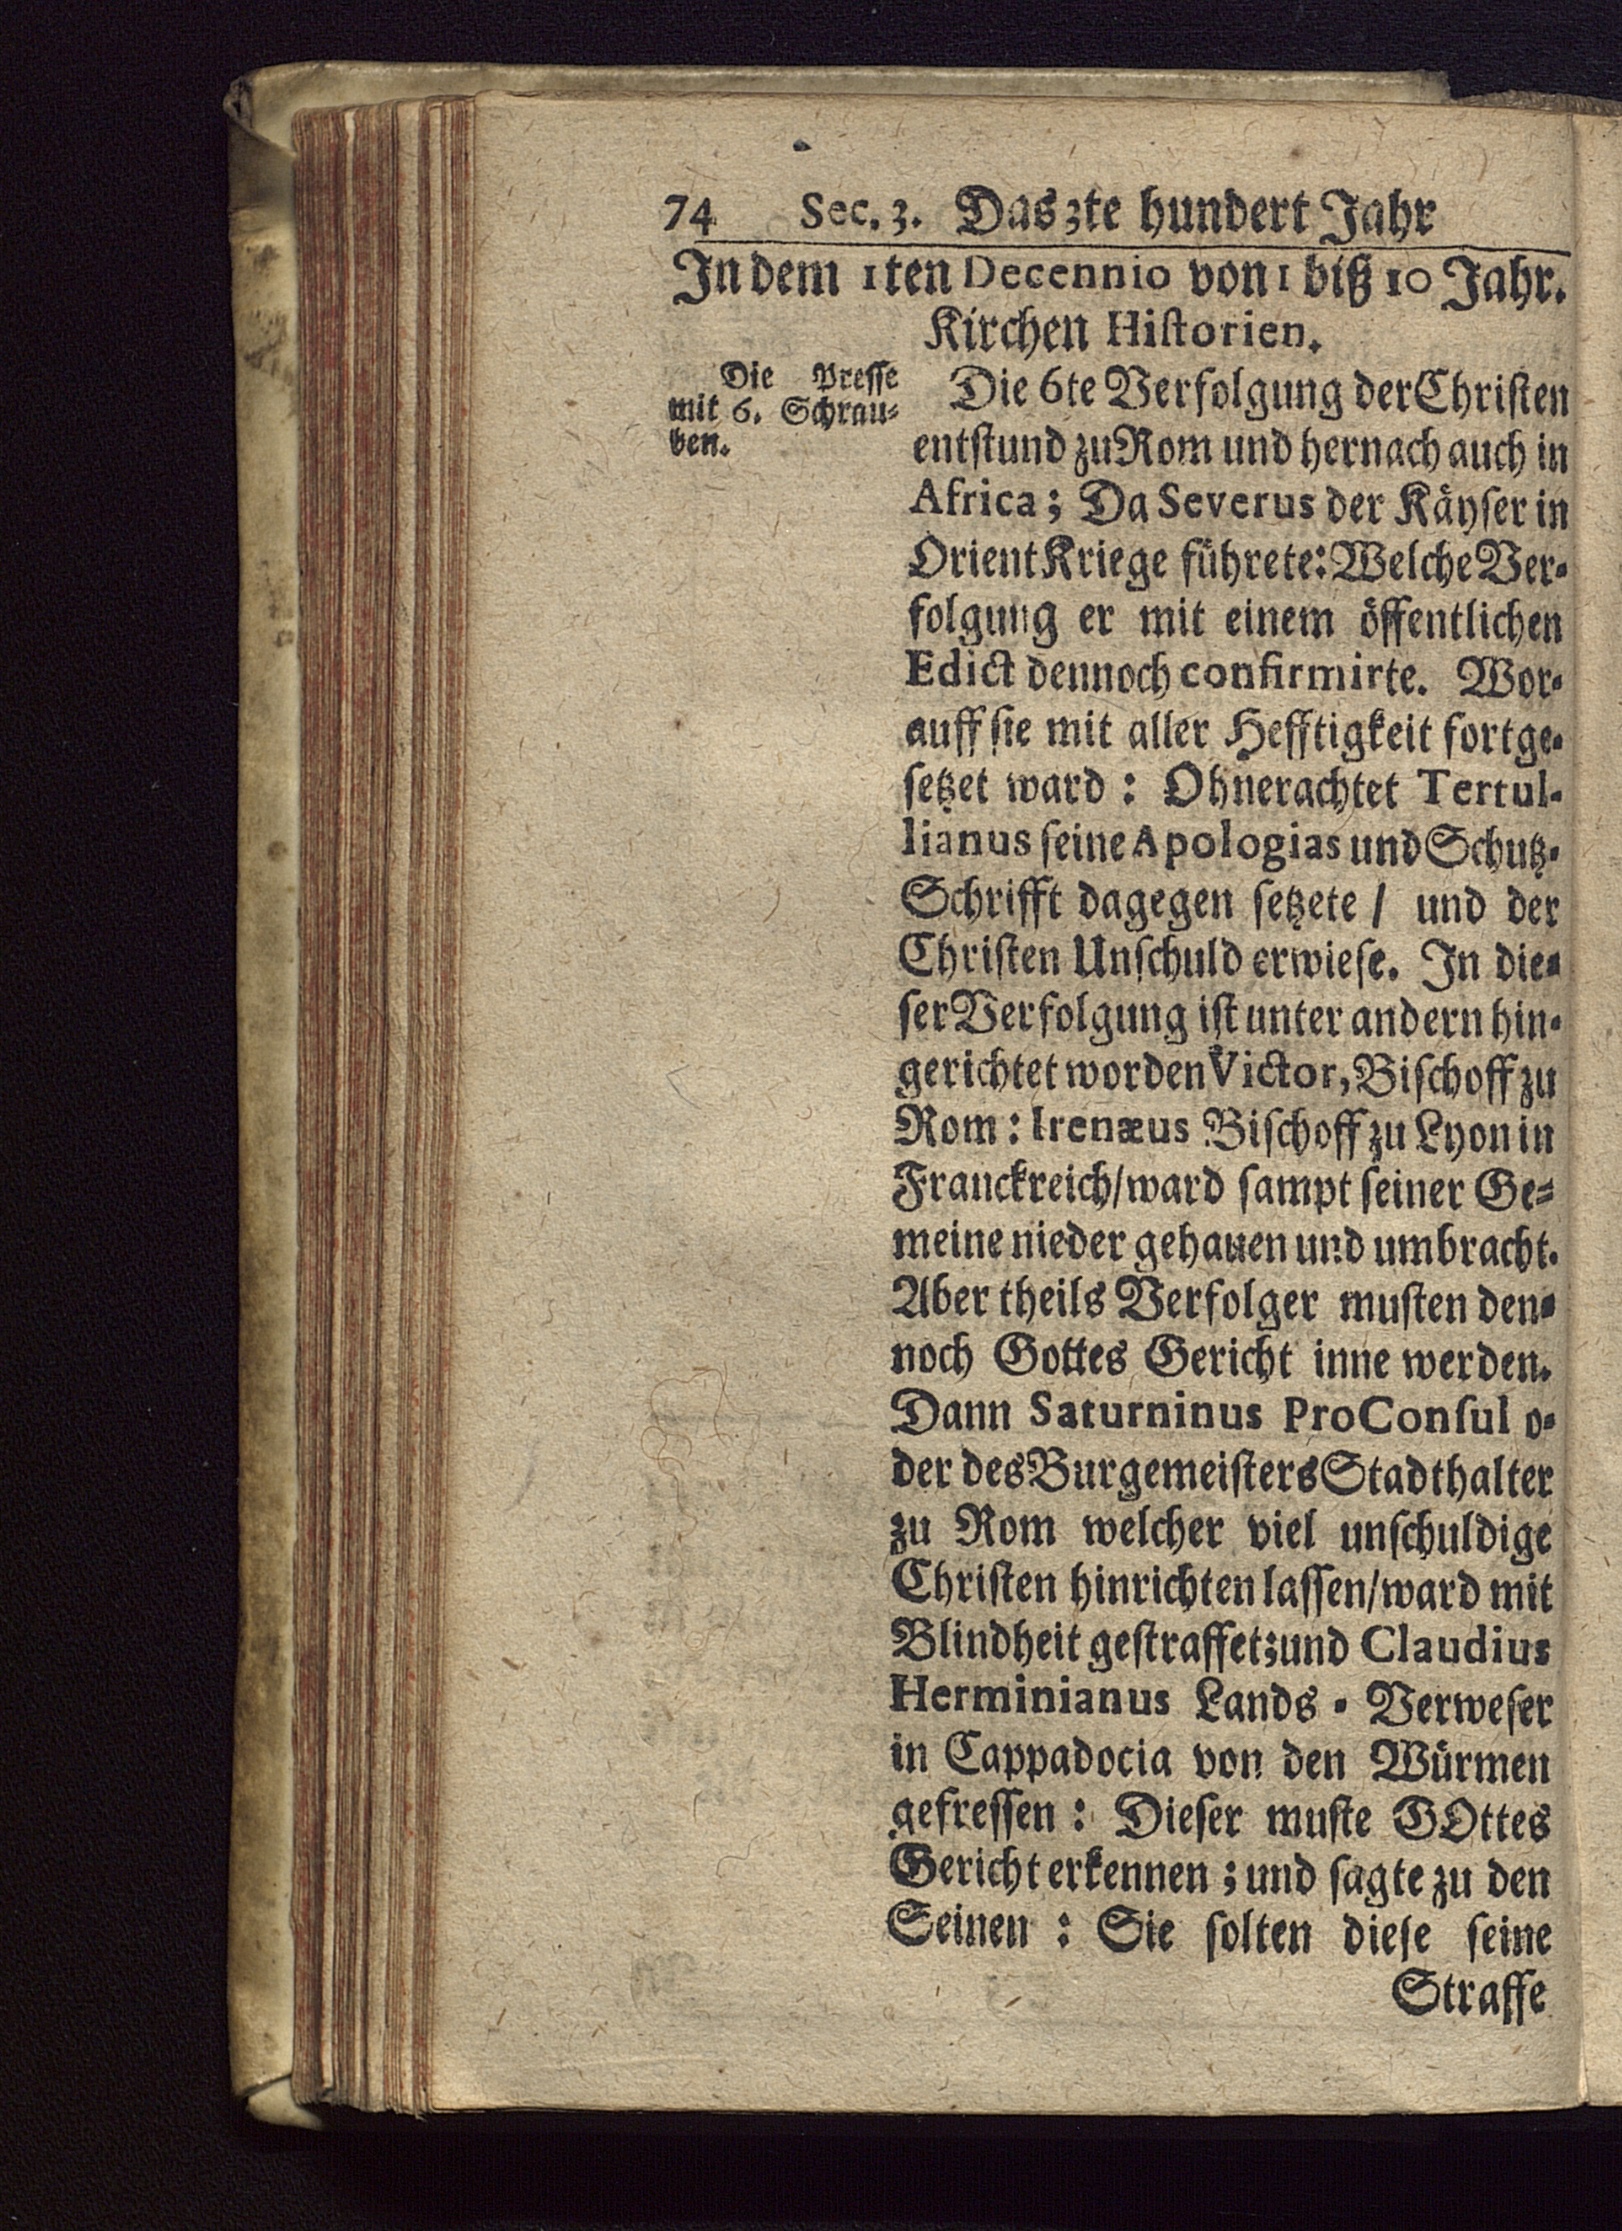 74 Sec. 3. Das 3te hundert Jahr
In dem 1ten Decennio von 1 biß 10 Jahr.
Kirchen Hiſtorien.
Die Preſſe
mit 6. Schrau-
ben.
Die 6te Verfolgung der Chriſten
entſtund zu Rom und hernach auch in
Africa; Da Severus der Käyſer in
Orient Kriege führete: Welche Ver-
folgung er mit einem öffentlichen
Edict dennoch confirmirte. Wor-
auff ſie mit aller Hefftigkeit fortge-
ſetzet ward: Ohnerachtet Tertul-
lianus ſeine Apologias und Schutz-
Schrifft dagegen ſetzete / und der
Chriſten Unſchuld erwieſe. In die-
ſer Verfolgung iſt unter andern hin-
gerichtet worden Victor, Biſchoff zu
Rom: Irenæus Biſchoff zu Lyon in
Franckreich/ward ſampt ſeiner Ge-
meine nieder gehauen und umbracht.
Aber theils Verfolger muſten den-
noch Gottes Gericht inne werden.
Dann Saturninus ProConſul o-
der des Burgemeiſters Stadthalter
zu Rom welcher viel unſchuldige
Chriſten hinrichten laſſen/ward mit
Blindheit geſtraffet; und Claudius
Herminianus Lands-Verweſer
in Cappadocia von den Würmen
gefreſſen: Dieſer muſte GOttes
Gericht erkennen; und ſagte zu den
Seinen: Sie ſolten dieſe ſeine
Straffe